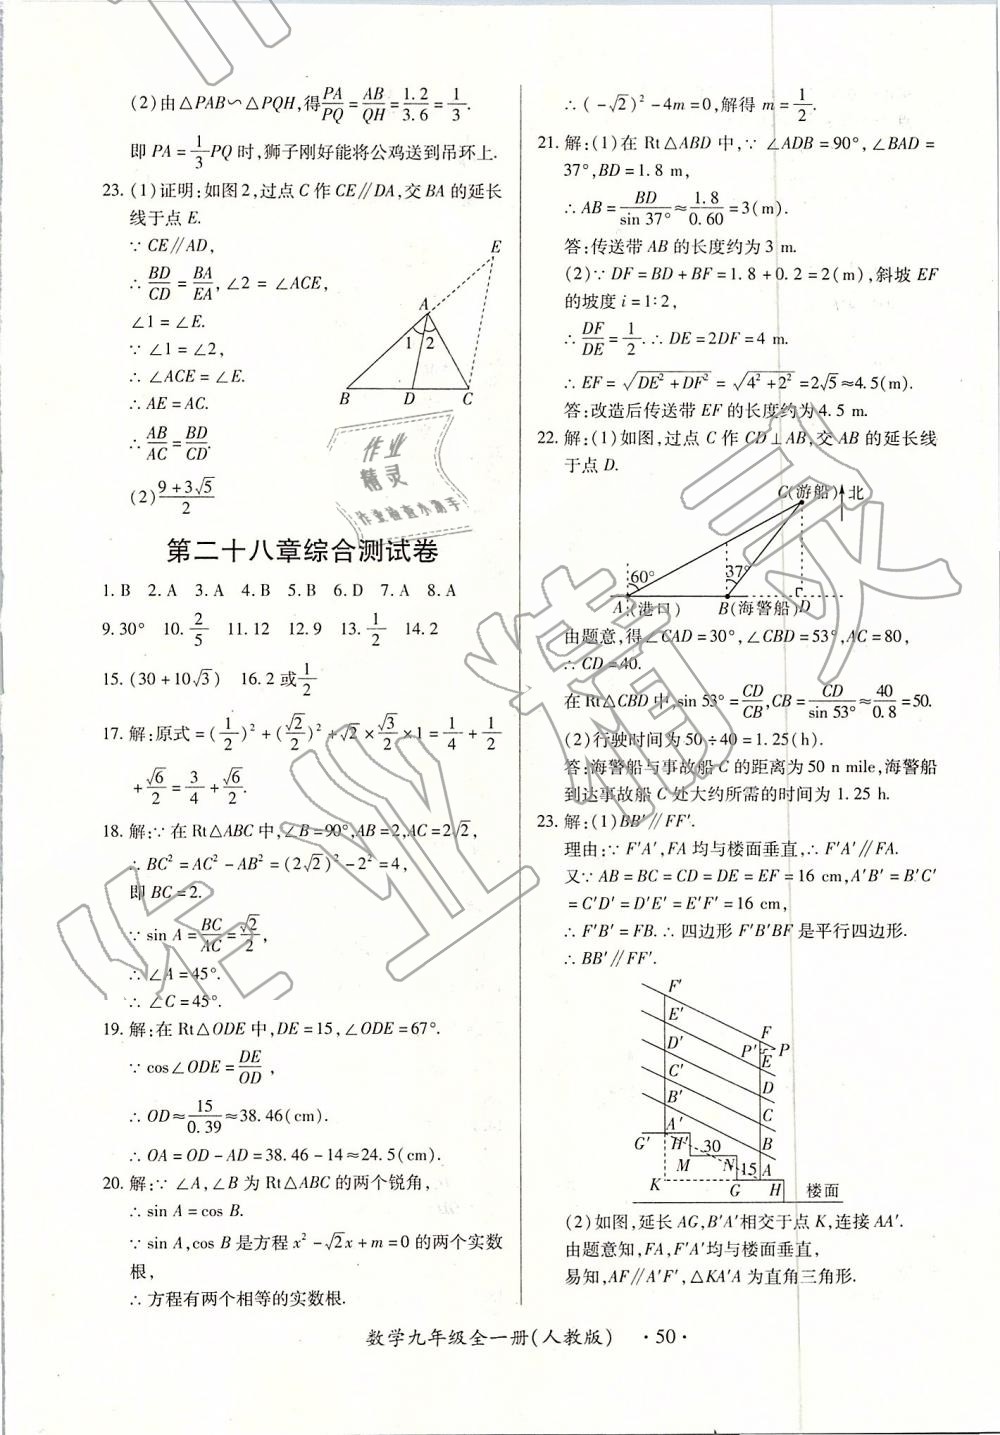 (2)由△PAB∽△PQH,得PA/PQ=AB/QH=1.2/3.6=1/3.
即 PA=1/3PQ 时,狮子刚好能将公鸡送到吊环上.
23.(1)证明:如图2,过点 C 作 CE∥DA,交 BA 的延长
线于点 E.
∵CE∥AD,
∴BD/CD=BA/EA,∠2=∠ACE,
∠1=∠E.
∵∠1=∠2,
∴∠ACE=∠E.
∴AE=AC.
∴AB/AC=BD/CD.
E
A
1 2
B D C
(2)(9+3√5)/2
作业
精灵
作业检查小助手
第二十八章综合测试卷
1.B 2.A 3.A 4.B 5.B 6.D 7.A 8.A
9.30° 10.2/5 11.12 12.9 13.1/2 14.2
15.(30+10√3) 16.2或1/2
17.解:原式=(1/2)²+(√2/2)²+√2×√3/2×1=1/4+1/2
+√6/2=3/4+√6/2.
18.解:∵在 Rt△ABC 中,∠B=90°,AB=2,AC=2√2,
∴BC²=AC²-AB²=(2√2)²-2²=4,
即 BC=2.
∵sin A=BC/AC=√2/2,
∴∠A=45°.
∴∠C=45°.
19.解:在 Rt△ODE 中,DE=15,∠ODE=67°.
∵cos∠ODE=DE/OD,
∴OD≈15/0.39≈38.46(cm).
∴OA=OD-AD=38.46-14≈24.5(cm).
20.解:∵∠A,∠B 为 Rt△ABC 的两个锐角,
∴sin A=cos B.
∵sin A,cos B 是方程 x²-√2x+m=0 的两个实数
根,
∴方程有两个相等的实数根.
∴(-√2)²-4m=0,解得 m=1/2.
21.解:(1)在 Rt△ABD 中,∵∠ADB=90°,∠BAD=
37°,BD=1.8 m,
∴AB=BD/sin 37°≈1.8/0.60=3(m).
答:传送带 AB 的长度约为 3 m.
(2)∵DF=BD+BF=1.8+0.2=2(m),斜坡 EF
的坡度 i=1∶2,
∴DF/DE=1/2.∴DE=2DF=4 m.
∴EF=√(DE²+DF²)=√(4²+2²)=2√5≈4.5(m).
答:改造后传送带 EF 的长度约为 4.5 m.
22.解:(1)如图,过点 C 作 CD⊥AB,交 AB 的延长线
于点 D.
C(游船) 北
60° 37°
A(港口) B(海警船) D
由题意,得∠CAD=30°,∠CBD=53°,AC=80,
∴CD=40.
在 Rt△CBD 中,sin 53°=CD/CB,CB=CD/sin 53°≈40/0.8=50.
(2)行驶时间为 50÷40=1.25(h).
答:海警船与事故船 C 的距离为 50 n mile,海警船
到达事故船 C 处大约所需的时间为 1.25 h.
23.解:(1)BB′∥FF′.
理由:∵F′A′,FA 均与楼面垂直,∴F′A′∥FA.
又∵AB=BC=CD=DE=EF=16 cm,A′B′=B′C′
=C′D′=D′E′=E′F′=16 cm,
∴F′B′=FB.∴四边形 F′B′BF 是平行四边形.
∴BB′∥FF′.
F′
E′ F
D′ P′ P
E
C′ D
B′ C
A′ B
G′ H′ 30
M N 15 A
K G H 楼面
(2)如图,延长 AG,B′A′相交于点 K,连接 AA′.
由题意知,FA,F′A′均与楼面垂直,
易知,AF∥A′F′,△KA′A 为直角三角形.
数学九年级全一册(人教版) ·50·
作业精灵